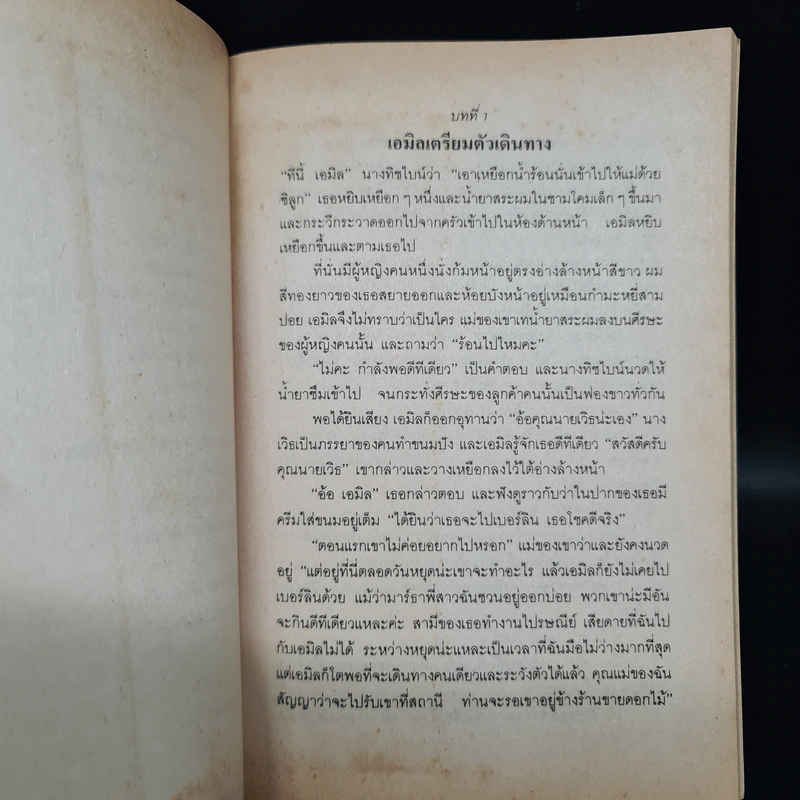 บทที่ 1
เอมิลเตรียมตัวเดินทาง
“ทีนี้ เอมิล” นางทิชไบน์ว่า “เอาเหยือกน้ำร้อนนั่นเข้าไปให้แม่ด้วย
ซิลูก” เธอหยิบเหยือก ๆ หนึ่งและน้ำยาสระผมในชามโคมเล็ก ๆ ขึ้นมา
และกระวีกระวาดออกไปจากครัวเข้าไปในห้องด้านหน้า เอมิลหยิบ
เหยือกขึ้นและตามเธอไป
ที่นั่นมีผู้หญิงคนหนึ่งนั่งก้มหน้าอยู่ตรงอ่างล้างหน้าสีขาว ผม
สีทองยาวของเธอสยายออกและห้อยบังหน้าอยู่เหมือนกำมะหยี่สาม
ปอย เอมิลจึงไม่ทราบว่าเป็นใคร แม่ของเขาเทน้ำยาสระผมลงบนศีรษะ
ของผู้หญิงคนนั้น และถามว่า “ร้อนไปไหมคะ”
“ไม่คะ กำลังพอดีทีเดียว” เป็นคำตอบ และนางทิชไบน์นวดให้
น้ำยาซึมเข้าไป จนกระทั่งศีรษะของลูกค้าคนนั้นเป็นฟองขาวทั่วกัน
พอได้ยินเสียง เอมิลก็ออกอุทานว่า “อ้อคุณนายเวิธน่ะเอง” นาง
เวิธเป็นภรรยาของคนทำขนมปัง และเอมิลรู้จักเธอดีทีเดียว “สวัสดีครับ
คุณนายเวิธ” เขากล่าวและวางเหยือกลงไว้ใต้อ่างล้างหน้า
“อ้อ เอมิล” เธอกล่าวตอบ และฟังดูราวกับว่าในปากของเธอมี
ครีมใส่ขนมอยู่เต็ม “ได้ยินว่าเธอจะไปเบอร์ลิน เธอโชคดีจริง”
“ตอนแรกเขาไม่ค่อยอยากไปหรอก” แม่ของเขาว่าและยังคงนวด
อยู่ “แต่อยู่ที่นี่ตลอดวันหยุดน่ะเขาจะทำอะไร แล้วเอมิลก็ยังไม่เคยไป
เบอร์ลินด้วย แม้ว่ามาร์ธาพี่สาวฉันชวนอยู่ออกบ่อย พวกเขาน่ะมีอัน
จะกินดีทีเดียวแหละค่ะ สามีของเธอทำงานไปรษณีย์ เสียดายที่ฉันไป
กับเอมิลไม่ได้ ระหว่างหยุดน่ะแหละเป็นเวลาที่ฉันมือไม่ว่างมากที่สุด
แต่เอมิลก็โตพอที่จะเดินทางคนเดียวและระวังตัวได้แล้ว คุณแม่ของฉัน
สัญญาว่าจะไปรับเขาที่สถานี ท่านจะรอเขาอยู่ข้างร้านขายดอกไม้”